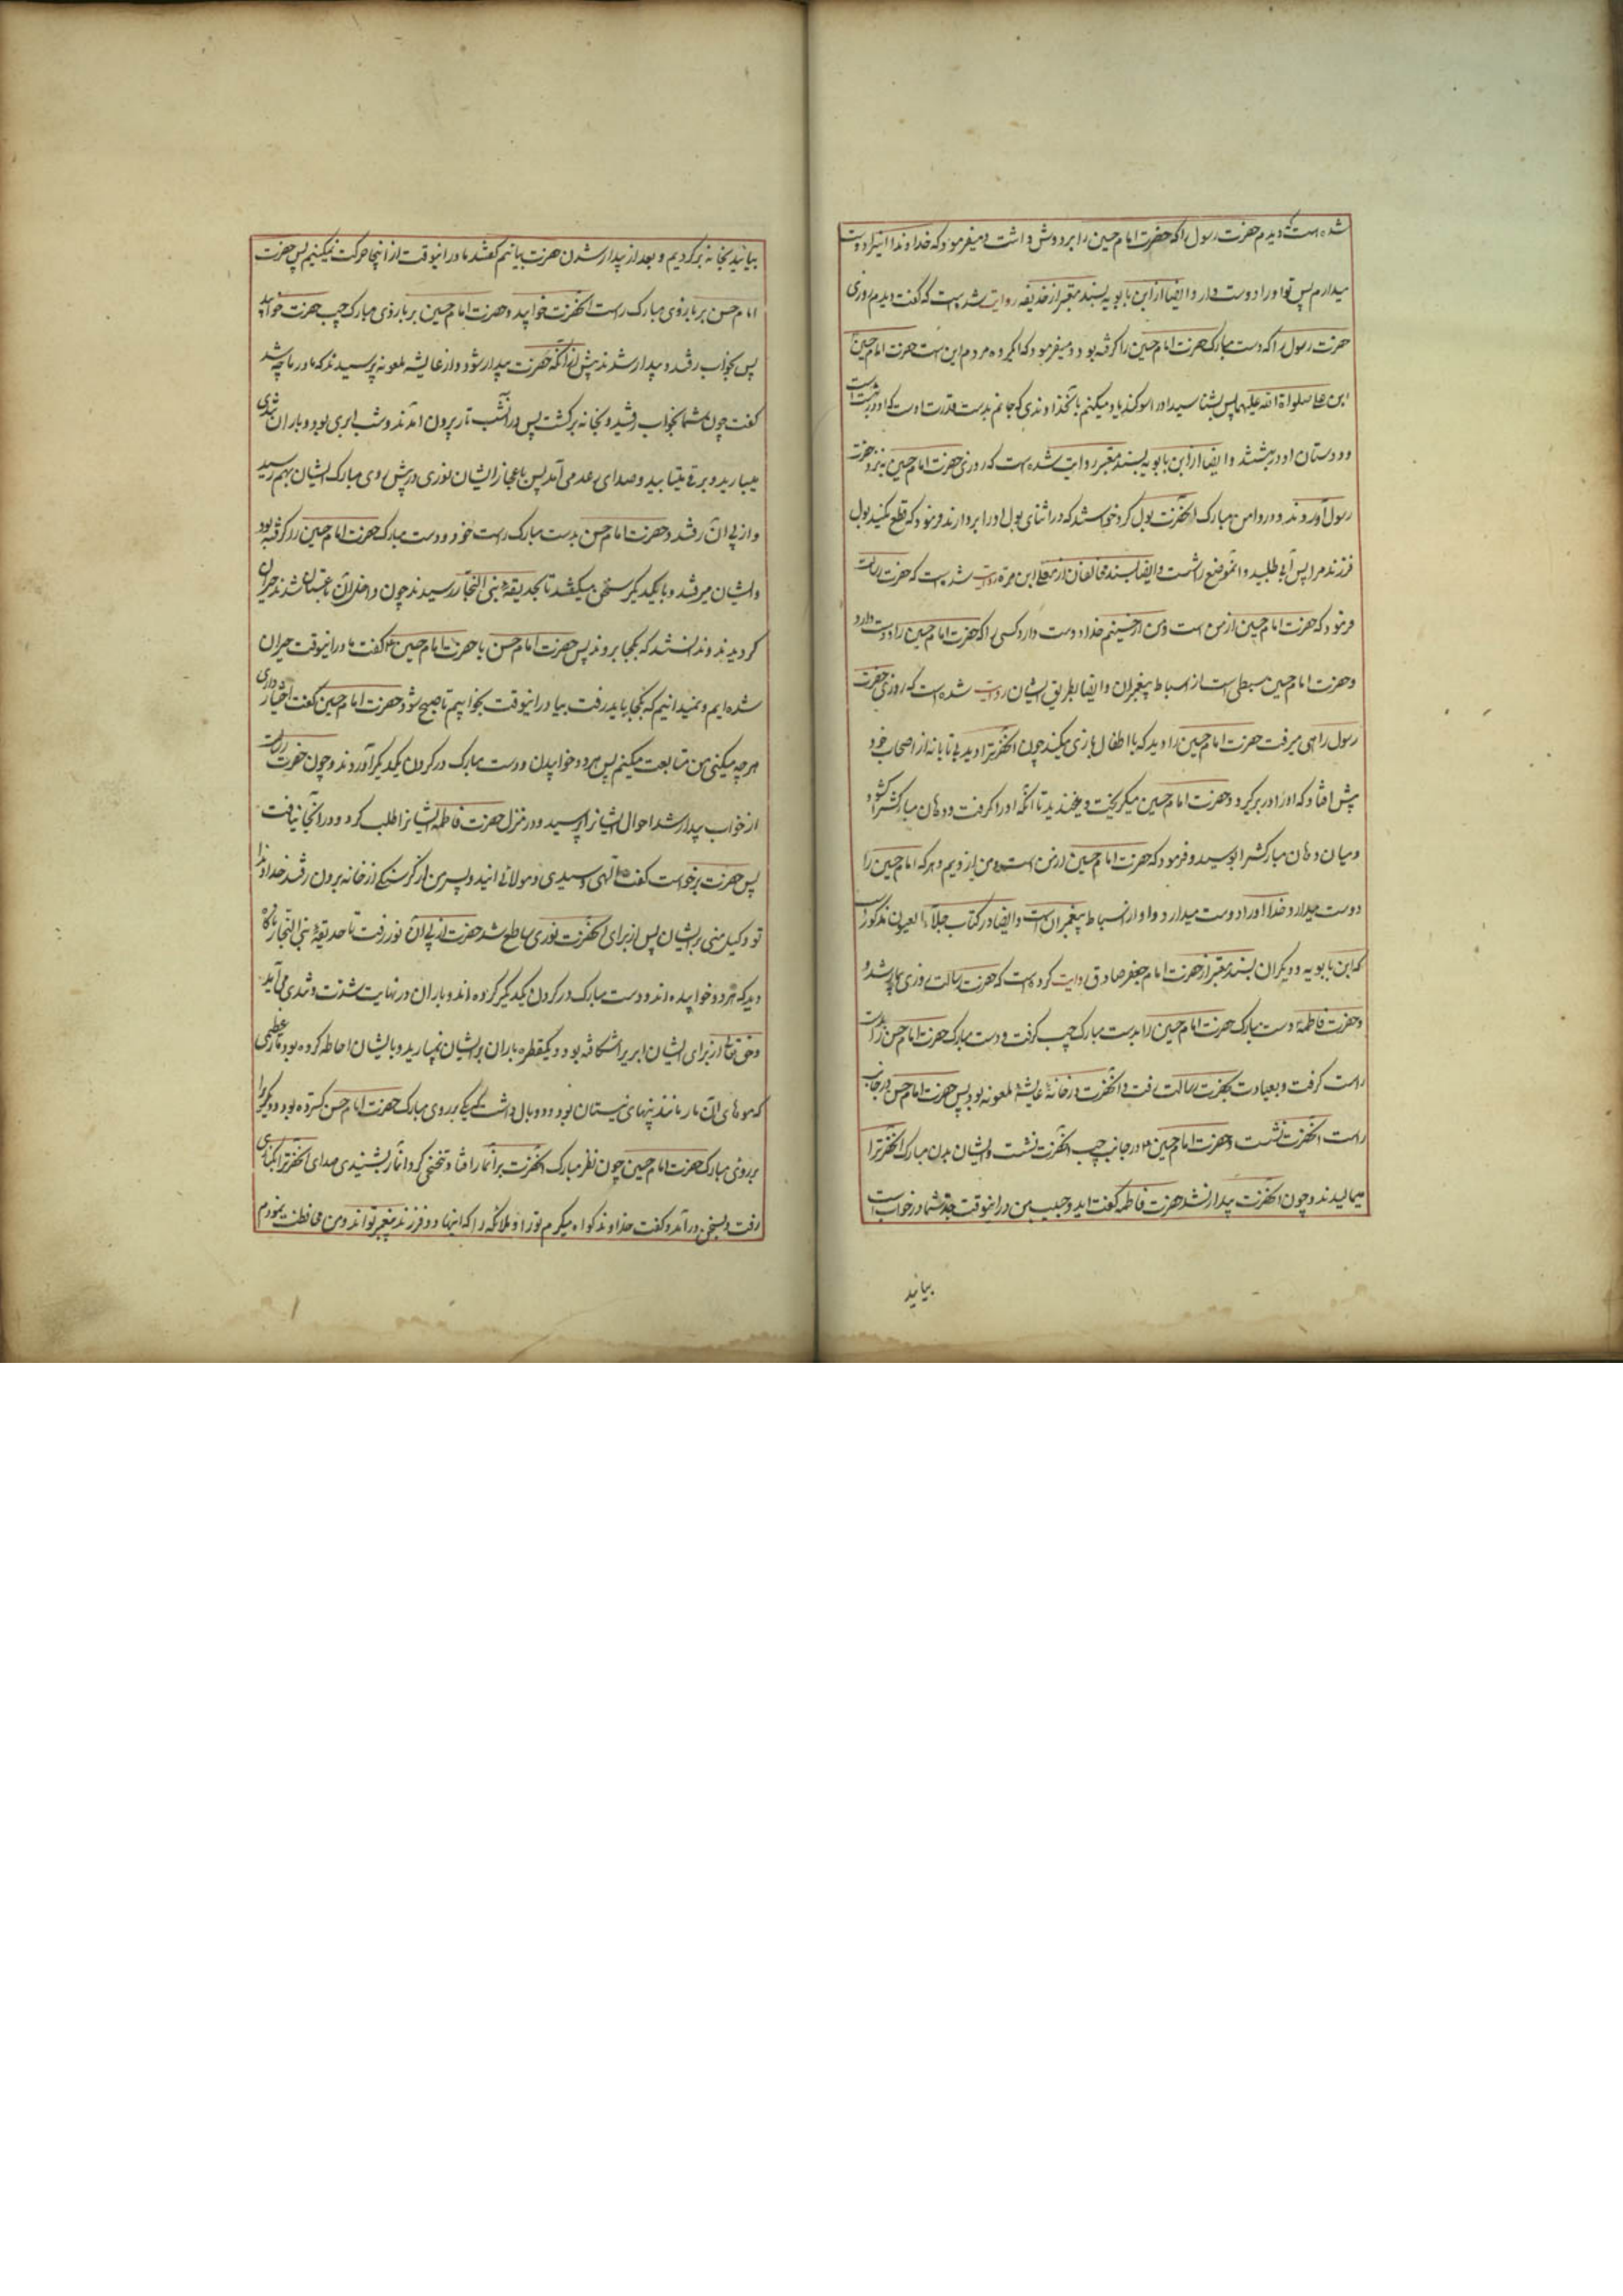 شده است که دیدم حضرت رسول را که حضرت امام حسین را بر دوش داشت و میفرمود که خداوندا اینرا دوست
میدارم پس تو او را دوست دار و ایضا از ابن بابویه بسند معتبر از حذیفه روایت شده است که گفت دیدم روزی
حضرت رسول را که دست مبارک حضرت امام حسین را گرفته بود و میفرمود که ای گروه مردم این است حضرت امام حسین
ابن علی صلواة الله علیهما پس بشناسید او را سوکند یاد میکنم بآنخداوندی که جانم بدست قدرت اوست که او در بهشت است
و دوستان او در بهشتند و ایضا از ابن بابویه بسند معتبر روایت شده است که روزی حضرت امام حسین به نزد حضرت
رسول آوردند و در دامن مبارک آنحضرت بول کرد خواستند که در اثنای بول او را بردارند فرمود که قطع مکنید بول
فرزند مرا پس آبی طلبید و آنموضع را شست و ایضا بسند مخالفان از یعلی ابن مره روایت شده است که حضرت رسالت
فرمود که حضرت امام حسین از من است و من از حسینم خدا دوست دارد کسی را که حضرت امام حسین را دوست دارد
و حضرت امام حسین سبطی است از اسباط پیغمبران و ایضا بطریق ایشان روایت شده است که روزی حضرت
رسول راهی میرفت حضرت امام حسین را دید که با اطفال بازی میکند چون آنحضرترا دید بی تابانه از اصحاب خود
پیش افتاد که او را در بر گیرد و حضرت امام حسین میگریخت و میخندید تا آنکه او را گرفت و دهان مبارکشرا گشود
و میان دهان مبارکشرا بوسید و فرمود که حضرت امام حسین از من است و من از ویم و هر که امام حسین را
دوست میدارد خدا او را دوست میدارد و او از اسباط پیغمبران است و ایضا در کتاب جلاء العیون مذکور است
که ابن بابویه و دیگران بسند معتبر از حضرت امام جعفر صادق روایت کرده است که حضرت رسالت روزی بیمار شد و
حضرت فاطمه دست مبارک حضرت امام حسین را بدست مبارک چپ گرفت و دست مبارک حضرت امام حسن را بدست
راست گرفت و بعیادت حضرت رسالت رفت و آنحضرت در خانهٔ عایشهٔ ملعونه بود پس حضرت امام حسن در جانب
راست آنحضرت نشست و حضرت امام حسین در جانب چپ آنحضرت نشست و ایشان بدن مبارک آنحضرترا
میمالیدند و چون آنحضرت بیدار نشد حضرت فاطمه گفت ای دو حبیب من در اینوقت جد شما در خواب است
بیائید
بیائید بخانه برگردیم و بعد از بیدار شدن حضرت بیائیم گفتند ما در اینوقت از اینجا حرکت نمیکنیم پس حضرت
امام حسن بر بازوی مبارک راست آنحضرت خوابید و حضرت امام حسین بر بازوی مبارک چپ حضرت خوابید
پس بخواب رفتند و بیدار شدند پیش از آنکه حضرت بیدار شود و از عایشهٔ ملعونه پرسیدند که مادر ما چه شد
گفت چون شما بخواب رفتید و بخانه برگشت پس در آنشب تار بیرون آمدند و شب ابری بود و باران بتندی
میبارید و برق میتابید و صدای رعد می آمد پس باعجاز ایشان نوری در پیش روی مبارک ایشان بهم رسید
و از پی آن رفتند و حضرت امام حسن بدست مبارک راست خود دست مبارک حضرت امام حسین را گرفته بود
و ایشان میرفتند و با یکدیگر سخن میگفتند تا بحدیقهٔ بنی النجار رسیدند چون داخل آن باغستان شدند حیران
گردیدند و ندانستند که بکجا بروند پس حضرت امام حسن با حضرت امام حسین گفت ما در اینوقت حیران
شده ایم و نمیدانیم که بکجا باید رفت بیا در اینوقت بخوابیم تا صبح شود حضرت امام حسین گفت اختیار داری
هر چه میکنی من متابعت میکنم پس هر دو خوابیدن و دست مبارک در گردن یکدیگر آوردند و چون حضرت رسالت
از خواب بیدار شد احوال ایشانرا پرسید و در منزل حضرت فاطمه ایشانرا طلب کرد و در آنجا نیافت
پس حضرت برخواست گفت الهی و سیدی و مولائی اینها دو پسر من از گرسنگی از خانه برون رفتند خداوندا
تو وکیل منی بر ایشان پس از برای آنحضرت نوری ساطع شد حضرت از پی آن نور رفت تا حدیقهٔ بنی النجار ناگاه
دید که هر دو خوابیده اند و دست مبارک در گردن یکدیگر کرده اند و باران در نهایت شدت و تندی می آید
و حق تعالی از برای ایشان ابر را شکافته بود و یکقطره باران بر ایشان نمیبارید و با ایشان احاطه کرده بود مار عظیمی
که موهای آن مار مانند نیهای نیستان بود و دو بال داشت یکی بر روی مبارک حضرت امام حسن گسترده بود و دیگریرا
بر روی مبارک حضرت امام حسین چون نظر مبارک آنحضرت بر آنمار افتاد تنحنحی کرد آنمار بشنیدی صدای آنحضرترا بکناری
رفت و بسخن در آمد و گفت خداوندا گواه میگیرم تو را و ملائکه را که اینها دو فرزند پیغمبر تواند و من محافظت نمودم